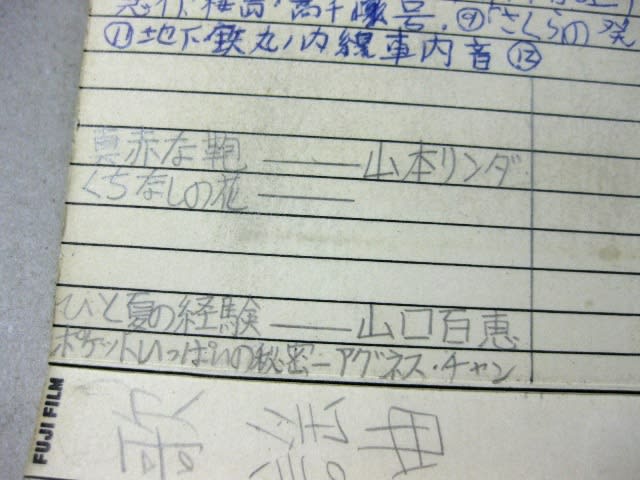 急行 桜島・高千穂号. ⑨「さくらの発
⑪地下鉄丸ノ内線車内音⑫
真赤な鞄 ――― 山本リンダ
くちなしの花 ―――
ひと夏の経験 ――― 山口百恵
ポケットいっぱいの秘密 – アグネス・チャン
FUJI FILM
歌謡曲